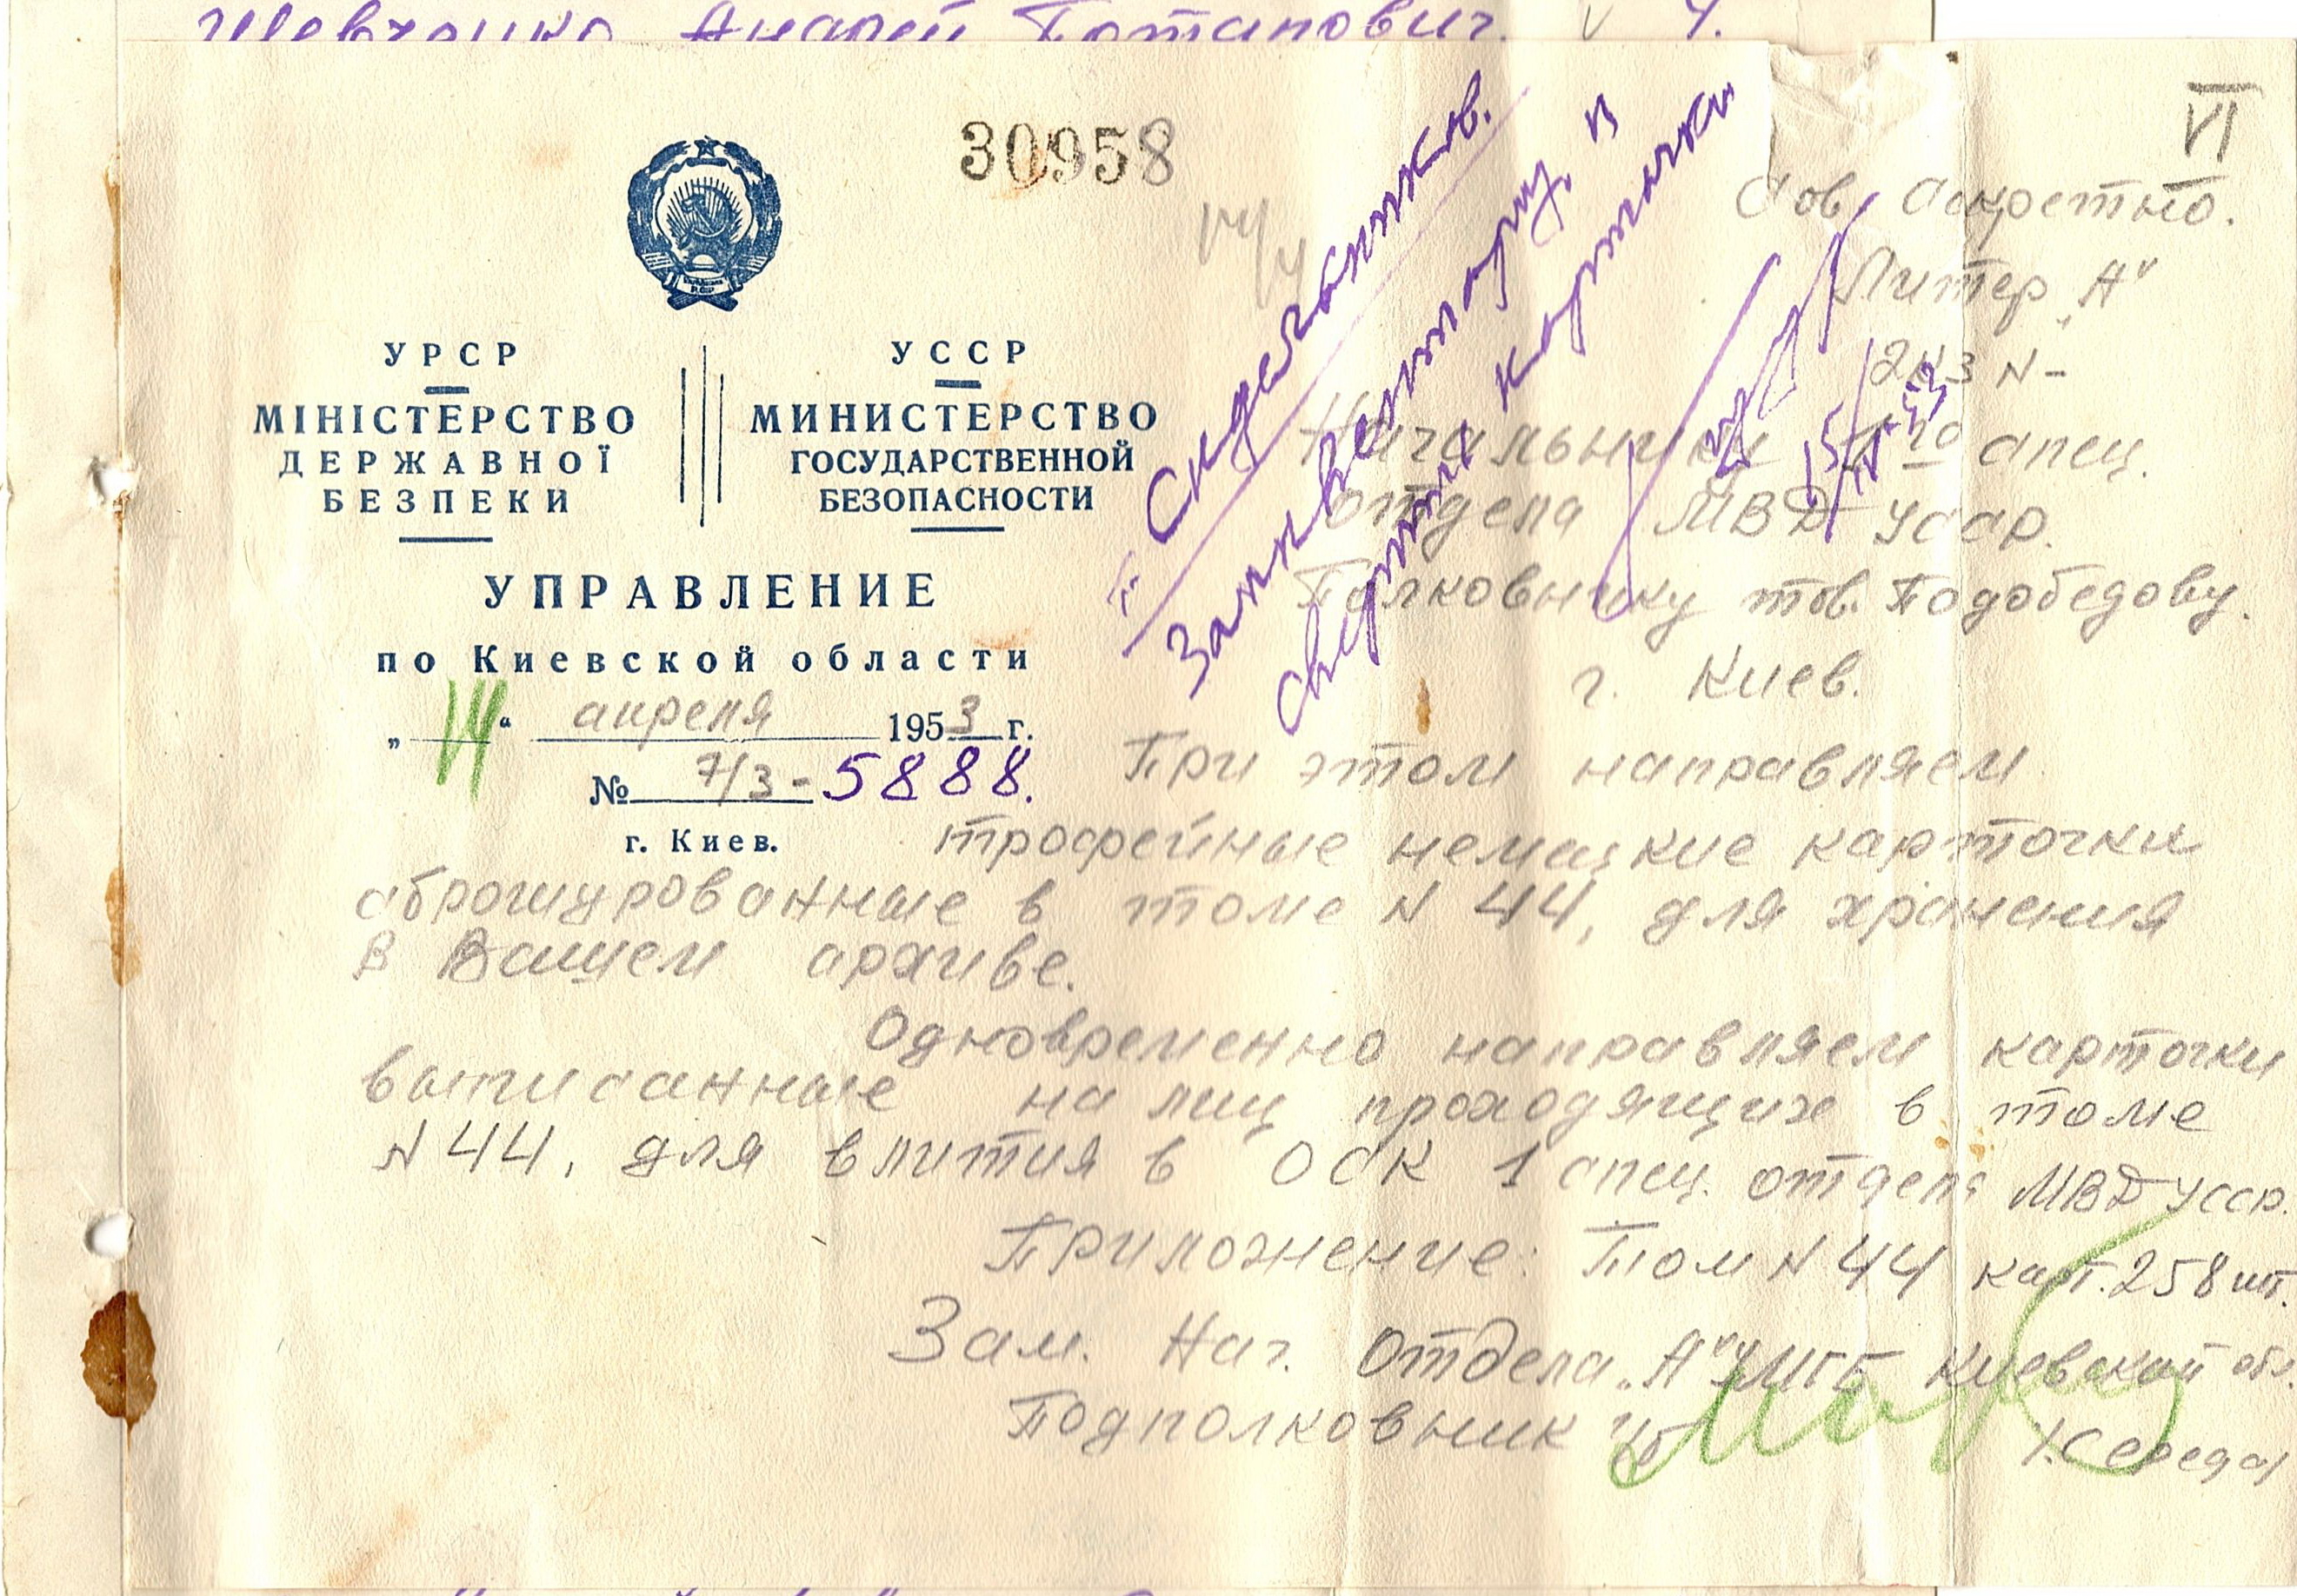 Шевченко Андрей Потапович. V 4.
30958
VI
Сов. Секретно.
Литер „А"
Экз N-
УРСР
МІНІСТЕРСТВО
ДЕРЖАВНОЇ
БЕЗПЕКИ
УССР
МИНИСТЕРСТВО
ГОСУДАРСТВЕННОЙ
БЕЗОПАСНОСТИ
УПРАВЛЕНИЕ
по Киевской области
„14" апреля 1953 г.
№ 7/3-5888.
г. Киев.
14/4
Заинвентариз. и
карточки
15/IV-53
Начальнику 1го спец.
отдела МВД УССР.
Полковнику тов. Подобедову.
г. Киев.
При этом направляем
трофейные немецкие карточки
сброшурованные в томе N 44, для хранения
в Вашем архиве.
Одновременно направляем карточки
выписанные на лиц проходящих в томе
N 44, для влития в ОСК 1 спец. отдела МВД УССР.
Приложение: Том N 44 карт. 258 шт.
Зам. Нач. Отдела „А" УМГБ Киевской обл.
Подполковник /Середа/